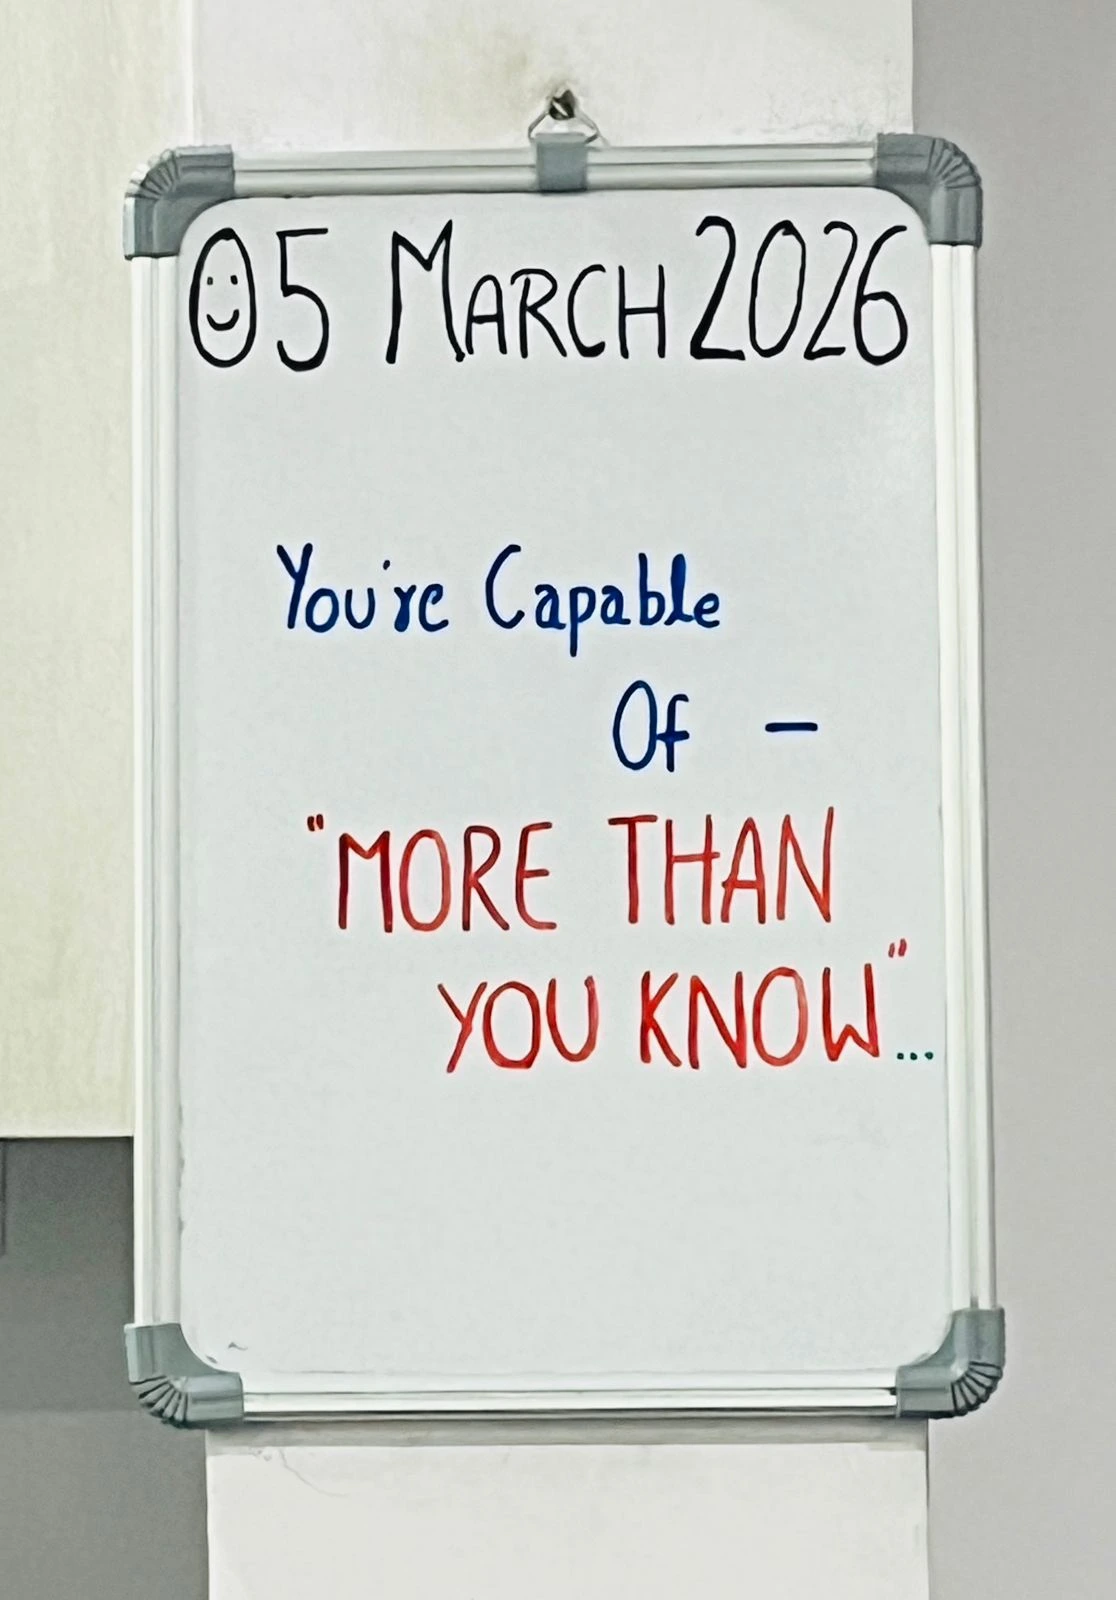 05 MARCH 2026
You're Capable
Of –
"MORE THAN
YOU KNOW"...